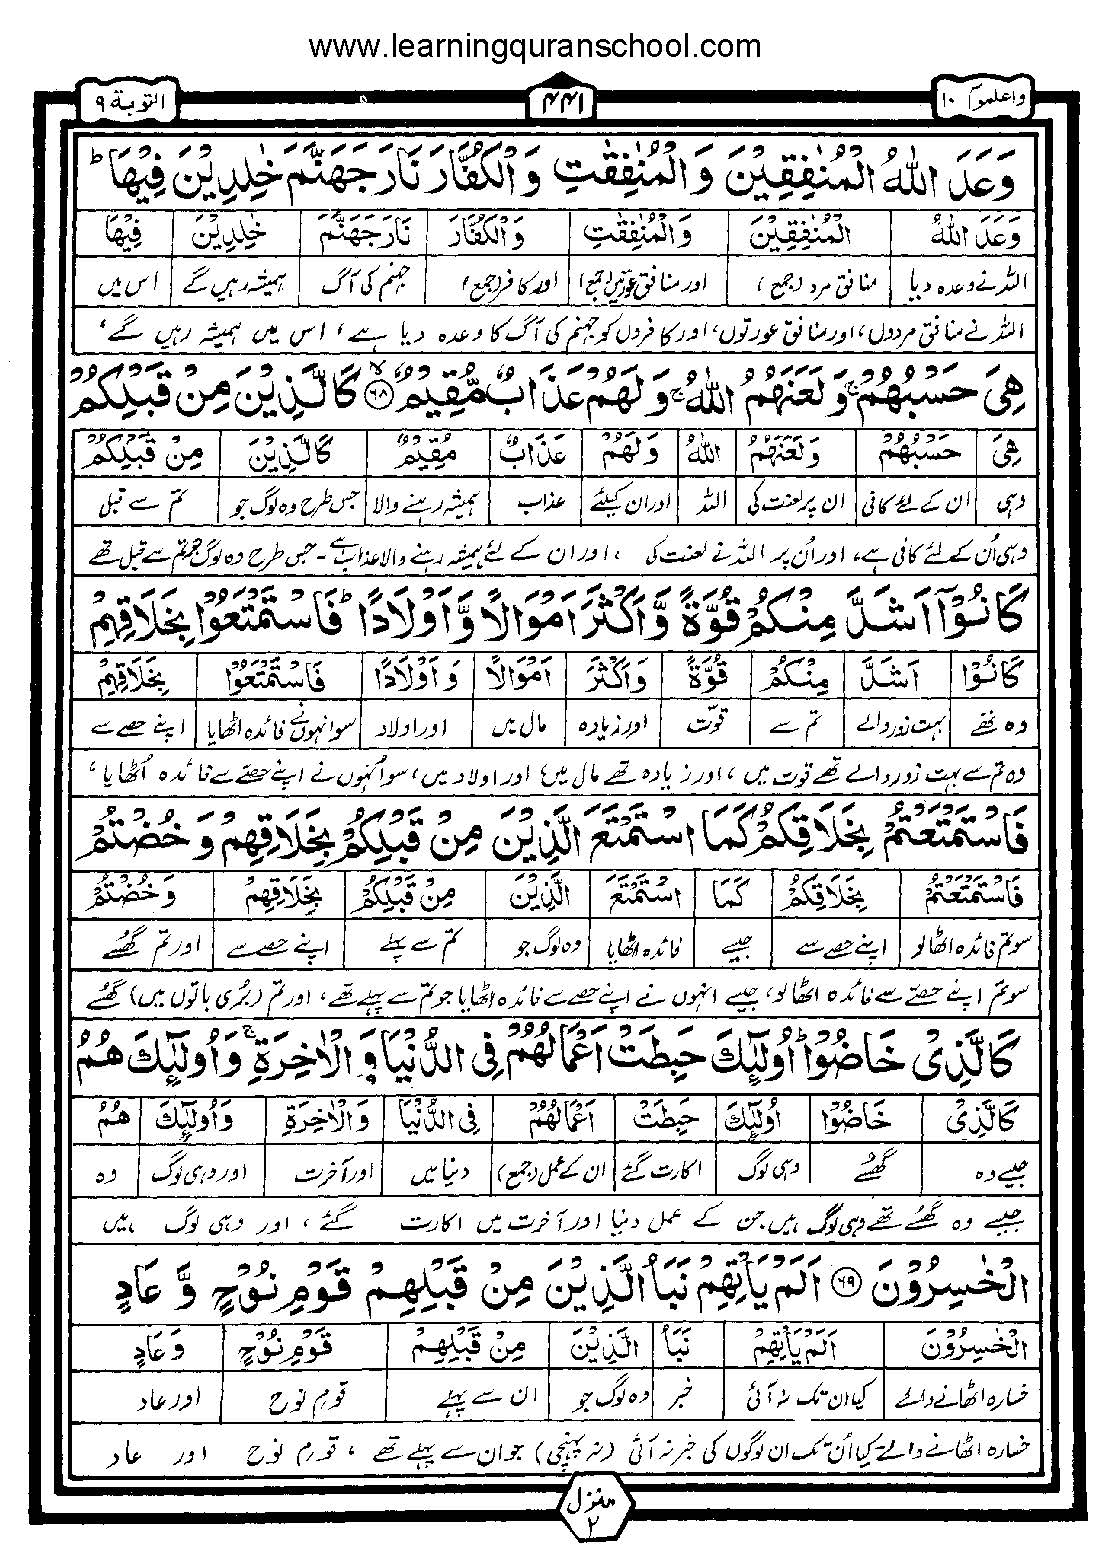 www.learningquranschool.com
واعلموا ١٠
٤٤١
التوبة ٩
وَعَدَ اللّٰهُ الْمُنٰفِقِيْنَ وَ الْمُنٰفِقٰتِ وَ الْكُفَّارَ نَارَ جَهَنَّمَ خٰلِدِيْنَ فِيْهَا ؕ
وَعَدَ اللّٰهُ الْمُنٰفِقِيْنَ وَ الْمُنٰفِقٰتِ وَ الْكُفَّارَ نَارَ جَهَنَّمَ خٰلِدِيْنَ فِيْهَا
اللہ نے وعدہ دیا منافق مرد (جمع) اور منافق عورتیں (جمع) اور کافر (جمع) جہنم کی آگ ہمیشہ رہیں گے اس میں
اللہ نے منافق مردوں، اور منافق عورتوں، اور کافروں کو جہنم کی آگ کا وعدہ دیا ہے، اس میں ہمیشہ رہیں گے،
هِيَ حَسْبُهُمْ ۚ وَ لَعَنَهُمُ اللّٰهُ ۚ وَ لَهُمْ عَذَابٌ مُّقِيْمٌ ﴿۶۸﴾ۙ كَالَّذِيْنَ مِنْ قَبْلِكُمْ
هِيَ حَسْبُهُمْ وَ لَعَنَهُمُ اللّٰهُ وَ لَهُمْ عَذَابٌ مُّقِيْمٌ كَالَّذِيْنَ مِنْ قَبْلِكُمْ
وہی ان کے لئے کافی ان پر لعنت کی اللہ اور ان کیلئے عذاب ہمیشہ رہنے والا جس طرح وہ لوگ جو تم سے قبل
وہی اُن کے لئے کافی ہے، اور اُن پر اللہ نے لعنت کی ، اور ان کے لئے ہمیشہ رہنے والا عذاب ہے۔ جس طرح وہ لوگ جو تم سے قبل تھے
كَانُوْۤا اَشَدَّ مِنْكُمْ قُوَّةً وَّ اَكْثَرَ اَمْوَالًا وَّ اَوْلَادًا ؕ فَاسْتَمْتَعُوْا بِخَلَاقِهِمْ
كَانُوْا اَشَدَّ مِنْكُمْ قُوَّةً وَ اَكْثَرَ اَمْوَالًا وَ اَوْلَادًا فَاسْتَمْتَعُوْا بِخَلَاقِهِمْ
وہ تھے بہت زور والے تم سے قوّت اور زیادہ مال میں اور اولاد سو انہوں نے فائدہ اٹھایا اپنے حصے سے
وہ تم سے بہت زور والے تھے قوت میں ، اور زیادہ تھے مال میں اور اولاد میں، سو اُنہوں نے اپنے حصّے سے فائدہ اُٹھایا ،
فَاسْتَمْتَعْتُمْ بِخَلَاقِكُمْ كَمَا اسْتَمْتَعَ الَّذِيْنَ مِنْ قَبْلِكُمْ بِخَلَاقِهِمْ وَ خُضْتُمْ
فَاسْتَمْتَعْتُمْ بِخَلَاقِكُمْ كَمَا اسْتَمْتَعَ الَّذِيْنَ مِنْ قَبْلِكُمْ بِخَلَاقِهِمْ وَ خُضْتُمْ
سو تم فائدہ اٹھالو اپنے حصے سے جیسے فائدہ اٹھایا وہ لوگ جو تم سے پہلے اپنے حصے سے اور تم گھسے
سو تم اپنے حصّے سے فائدہ اٹھالو، جیسے انہوں نے اپنے حصے سے فائدہ اٹھایا جو تم سے پہلے تھے، اور تم (بُری باتوں میں) گھُسے
كَالَّذِيْ خَاضُوْا ؕ اُولٰٓئِكَ حَبِطَتْ اَعْمَالُهُمْ فِي الدُّنْيَا وَ الْاٰخِرَةِ ۚ وَ اُولٰٓئِكَ هُمُ
كَالَّذِيْ خَاضُوْا اُولٰٓئِكَ حَبِطَتْ اَعْمَالُهُمْ فِي الدُّنْيَا وَ الْاٰخِرَةِ وَ اُولٰٓئِكَ هُمُ
جیسے وہ گھسے وہی لوگ اکارت گئے ان کے عمل (جمع) دنیا میں اور آخرت اور وہی لوگ وہ
جیسے وہ گھُسے تھے وہی لوگ ہیں جن کے عمل دنیا اور آخرت میں اکارت گئے ، اور وہی لوگ ہیں
الْخٰسِرُوْنَ ﴿۶۹﴾ اَلَمْ يَاْتِهِمْ نَبَاُ الَّذِيْنَ مِنْ قَبْلِهِمْ قَوْمِ نُوْحٍ وَّ عَادٍ
الْخٰسِرُوْنَ اَلَمْ يَاْتِهِمْ نَبَاُ الَّذِيْنَ مِنْ قَبْلِهِمْ قَوْمِ نُوْحٍ وَ عَادٍ
خسارہ اٹھانے والے کیا ان تک نہ آئی خبر وہ لوگ جو ان سے پہلے قوم نوح اور عاد
خسارہ اٹھانے والے، کیا اُن تک ان لوگوں کی خبر نہ آئی (نہ پہنچی) جو ان سے پہلے تھے ، قوم نوح اور عاد
منزل
٢